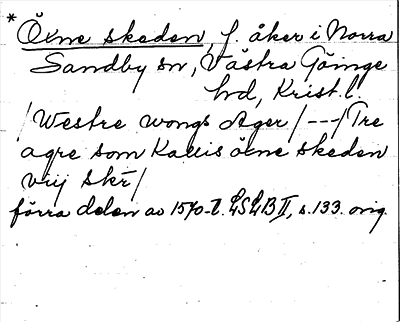 * Öene skeden, f. åker i Norra
Sandby sn, Västra Göinge
hd, Krist. l.
/Westre wongs Ager/---/Tre
agre som Kallis öene skeden
vij skr/
förra delen av 1570-t. LSLB II, s. 133. orig.